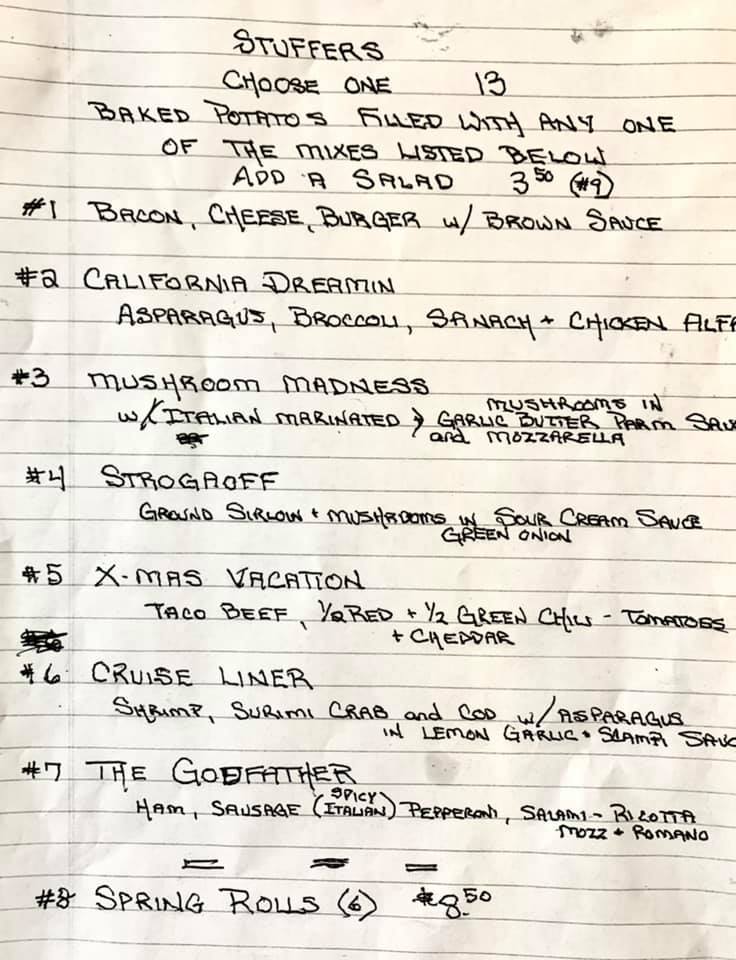 STUFFERS
CHOOSE ONE 13
BAKED POTATOS FILLED WITH ANY ONE
OF THE MIXES LISTED BELOW
ADD A SALAD 3 50 (#9)
#1 BACON, CHEESE, BURGER W/ BROWN SAUCE
#2 CALIFORNIA DREAMIN
ASPARAGUS, BROCCOLI, SANACH + CHICKEN ALFR
#3 MUSHROOM MADNESS
MUSHROOMS IN
W/ ITALIAN MARINATED GARLIC BUTTER PARM SAU
and MOZZARELLA
#4 STROGAOFF
GROUND SIRLOW + MUSHROOMS IN SOUR CREAM SAUCE
GREEN ONION
#5 X-MAS VACATION
TACO BEEF, 1/2 RED + 1/2 GREEN CHILI - TOMATOES
+ CHEDDAR
#6 CRUISE LINER
SHRIMP, SURIMI CRAB and COD W/ ASPARAGUS
IN LEMON GARLIC + SCAMPI SAUC
#7 THE GODFATHER
SPICY
HAM, SAUSAGE (ITALIAN) PEPPERONI, SALAMI - RICOTTA
MOZZ + ROMANO
#8 SPRING ROLLS (6) $8.50